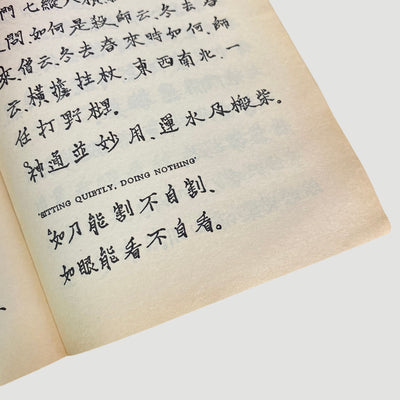 門七縱
問、如何是殺、師云、冬去春
來、僧云、冬去春來時如何、師
云、橫擔拄杖、東西南北、一
任打野榸。
神通並妙用、運水及搬柴。
'SITTING QUIETLY, DOING NOTHING'
如刀能割不自割、
如眼能看不自看。